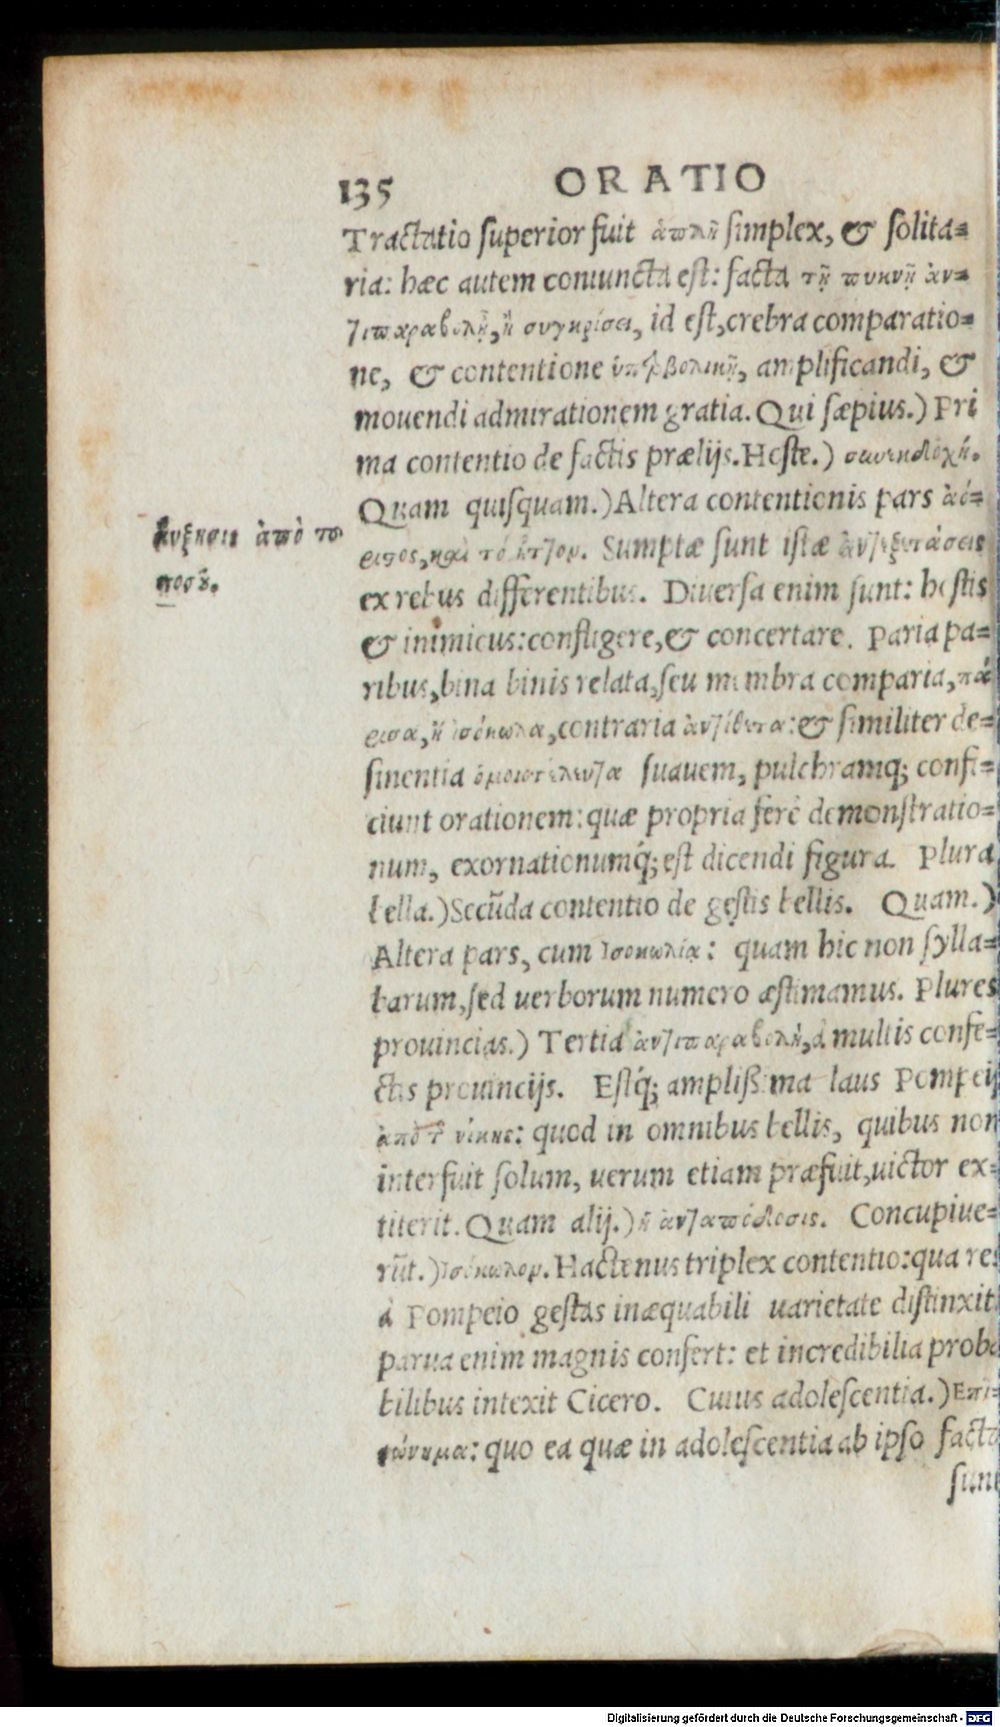 135 ORATIO
Tractatio superior fuit ἁπλῆ simplex, & solita=
ria: hæc autem coniuncta est: facta τῇ πυκνῇ ἀν=
τιπαραβολῇ, ἢ συγκρίσει, id est, crebra comparatio=
ne, & contentione ὑπερβολικῇ, amplificandi, &
mouendi admirationem gratia. Qui sæpius.) Pri
ma contentio de factis prælijs. Hoste.) συνεκδοχή.
Quam quisquam.) Altera contentionis pars ἀό=
ριστος, καὶ τὸ ἧττον. Sumptæ sunt istæ ἀντεξετάσεις
αὔξησις ἀπὸ το
ποσοῦ.
ex rebus differentibus. Diuersa enim sunt: hostis
& inimicus: confligere, & concertare. Paria pa=
ribus, bina binis relata, seu membra comparia, πά
ρισα, ἢ ἰσόκωλα, contraria ἀντίθετα: & similiter de=
sinentia ὁμοιοτέλευτα suauem, pulchramq́; confi=
ciunt orationem: quæ propria ferè demonstratio=
num, exornationumq́; est dicendi figura. Plura
bella.) Secūda contentio de gestis bellis. Quam.)
Altera pars, cum ἰσοκωλία: quam hic non sylla=
barum, sed uerborum numero æstimamus. Plures
prouincias.) Tertia ἀντιπαραβολὴ, à multis confe=
ctis prouincijs. Estq́; amplißima laus Pompeij
ἀπὸ τ῀ νίκης: quod in omnibus bellis, quibus non
interfuit solum, uerum etiam præfuit, uictor ex=
titerit. Quam alij.) ἡ ἀνταπόδοσις. Concupiue=
rūt.) ἰσόκωλον. Hactenus triplex contentio: qua res
à Pompeio gestas inæquabili uarietate distinxit
parua enim magnis confert: et incredibilia proba
bilibus intexit Cicero. Cuius adolescentia.) Επι=
φώνημα: quo ea quæ in adolescentia ab ipso facta
sunt
Digitalisierung gefördert durch die Deutsche Forschungsgemeinschaft - DFG